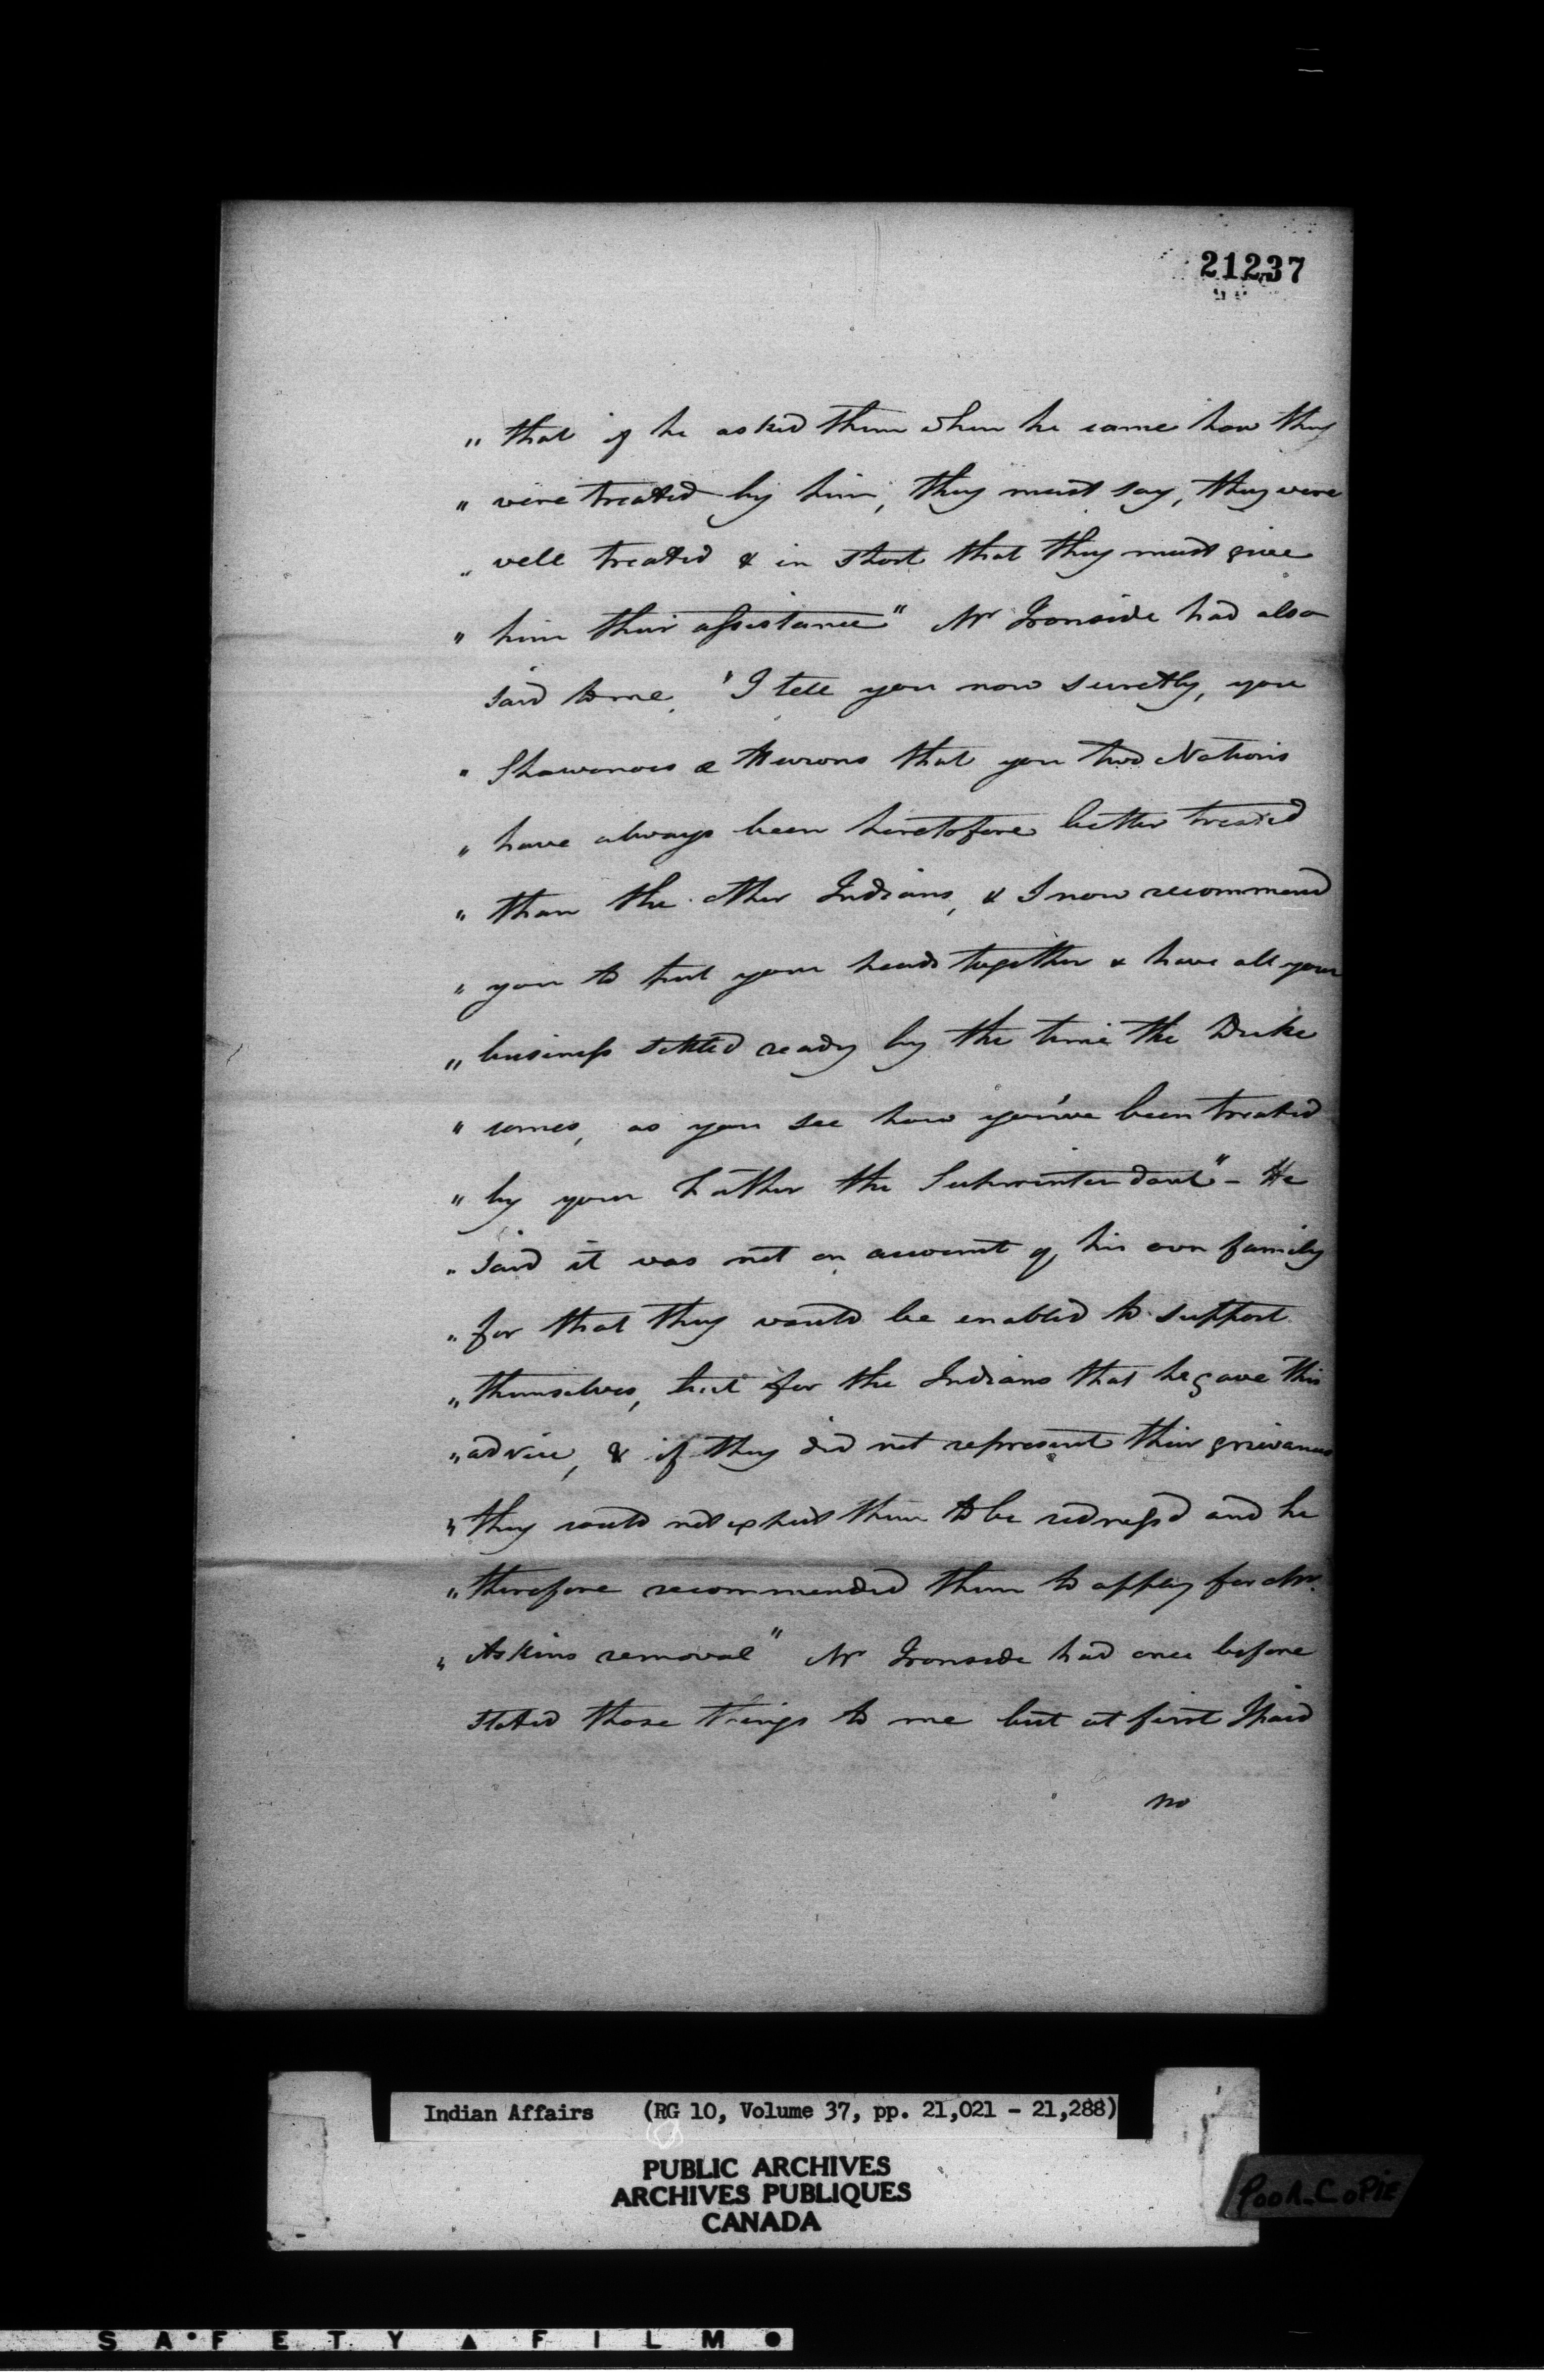 21237
" that if he asked them when he came how they
" were treated by him, they must say, they were
" well treated & in short that they must give
" him their assistance" Mr Ironside had also
said to me, "I tell you now secretly, you
" Shawanoes & Hurons that you two Nations
" have always been heretofore better treated
" than the other Indians, & I now recommend
" you to put your heads together & have all your
" business settled ready by the time the Duke
" comes, as you see how you've been treated
" by your Father the Superintendant" - He
" said it was not on account of his own family
" for that they would be enabled to support
" themselves, but for the Indians that he gave this
" advice, & if they did not represent their grievances
" they could not expect them to be redress'd and he
" therefore recommended them to apply for Mr.
" Askins removal" Mr Ironside had once before
stated those things to me but at first I paid
no
Indian Affairs (RG 10, Volume 37, pp. 21,021 - 21,288)
PUBLIC ARCHIVES
ARCHIVES PUBLIQUES
CANADA
POOR COPIE
SAFETY FILM